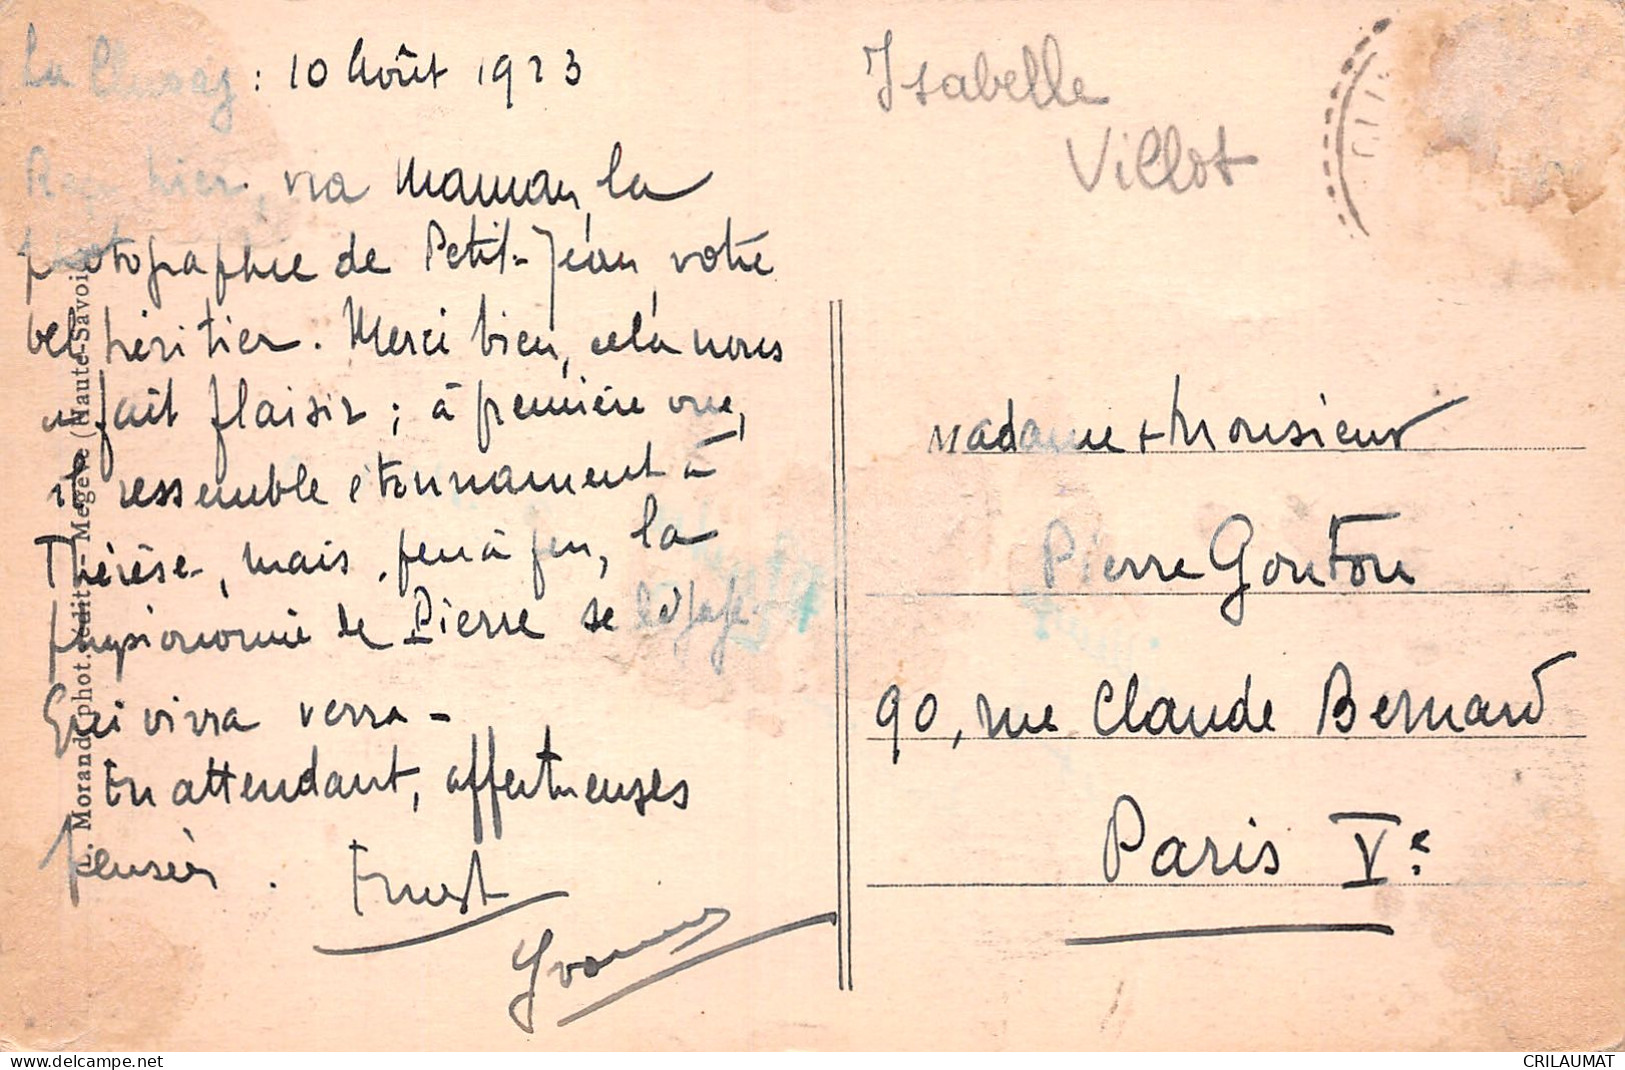 La Clusaz : 10 Août 1923
Reçu hier, via Maman, la
photographie de Petit-Jean, votre
bel héritier. Merci bien, cela nous
a fait plaisir ; à première vue,
il ressemble étonnament à
Thérèse, mais, peu à peu, la
physionomie de Pierre se
Qui vivra verra -
En attendant, affectueuses
pensées. Ernest
Yvonne
L. Morand, phot. édit. - Megève (Haute-Savoie)
Isabelle
Villot
Madame & Monsieur
Pierre Gouton
90, rue Claude Bernard
Paris Ve
delcampe.net
CRILAUMAT